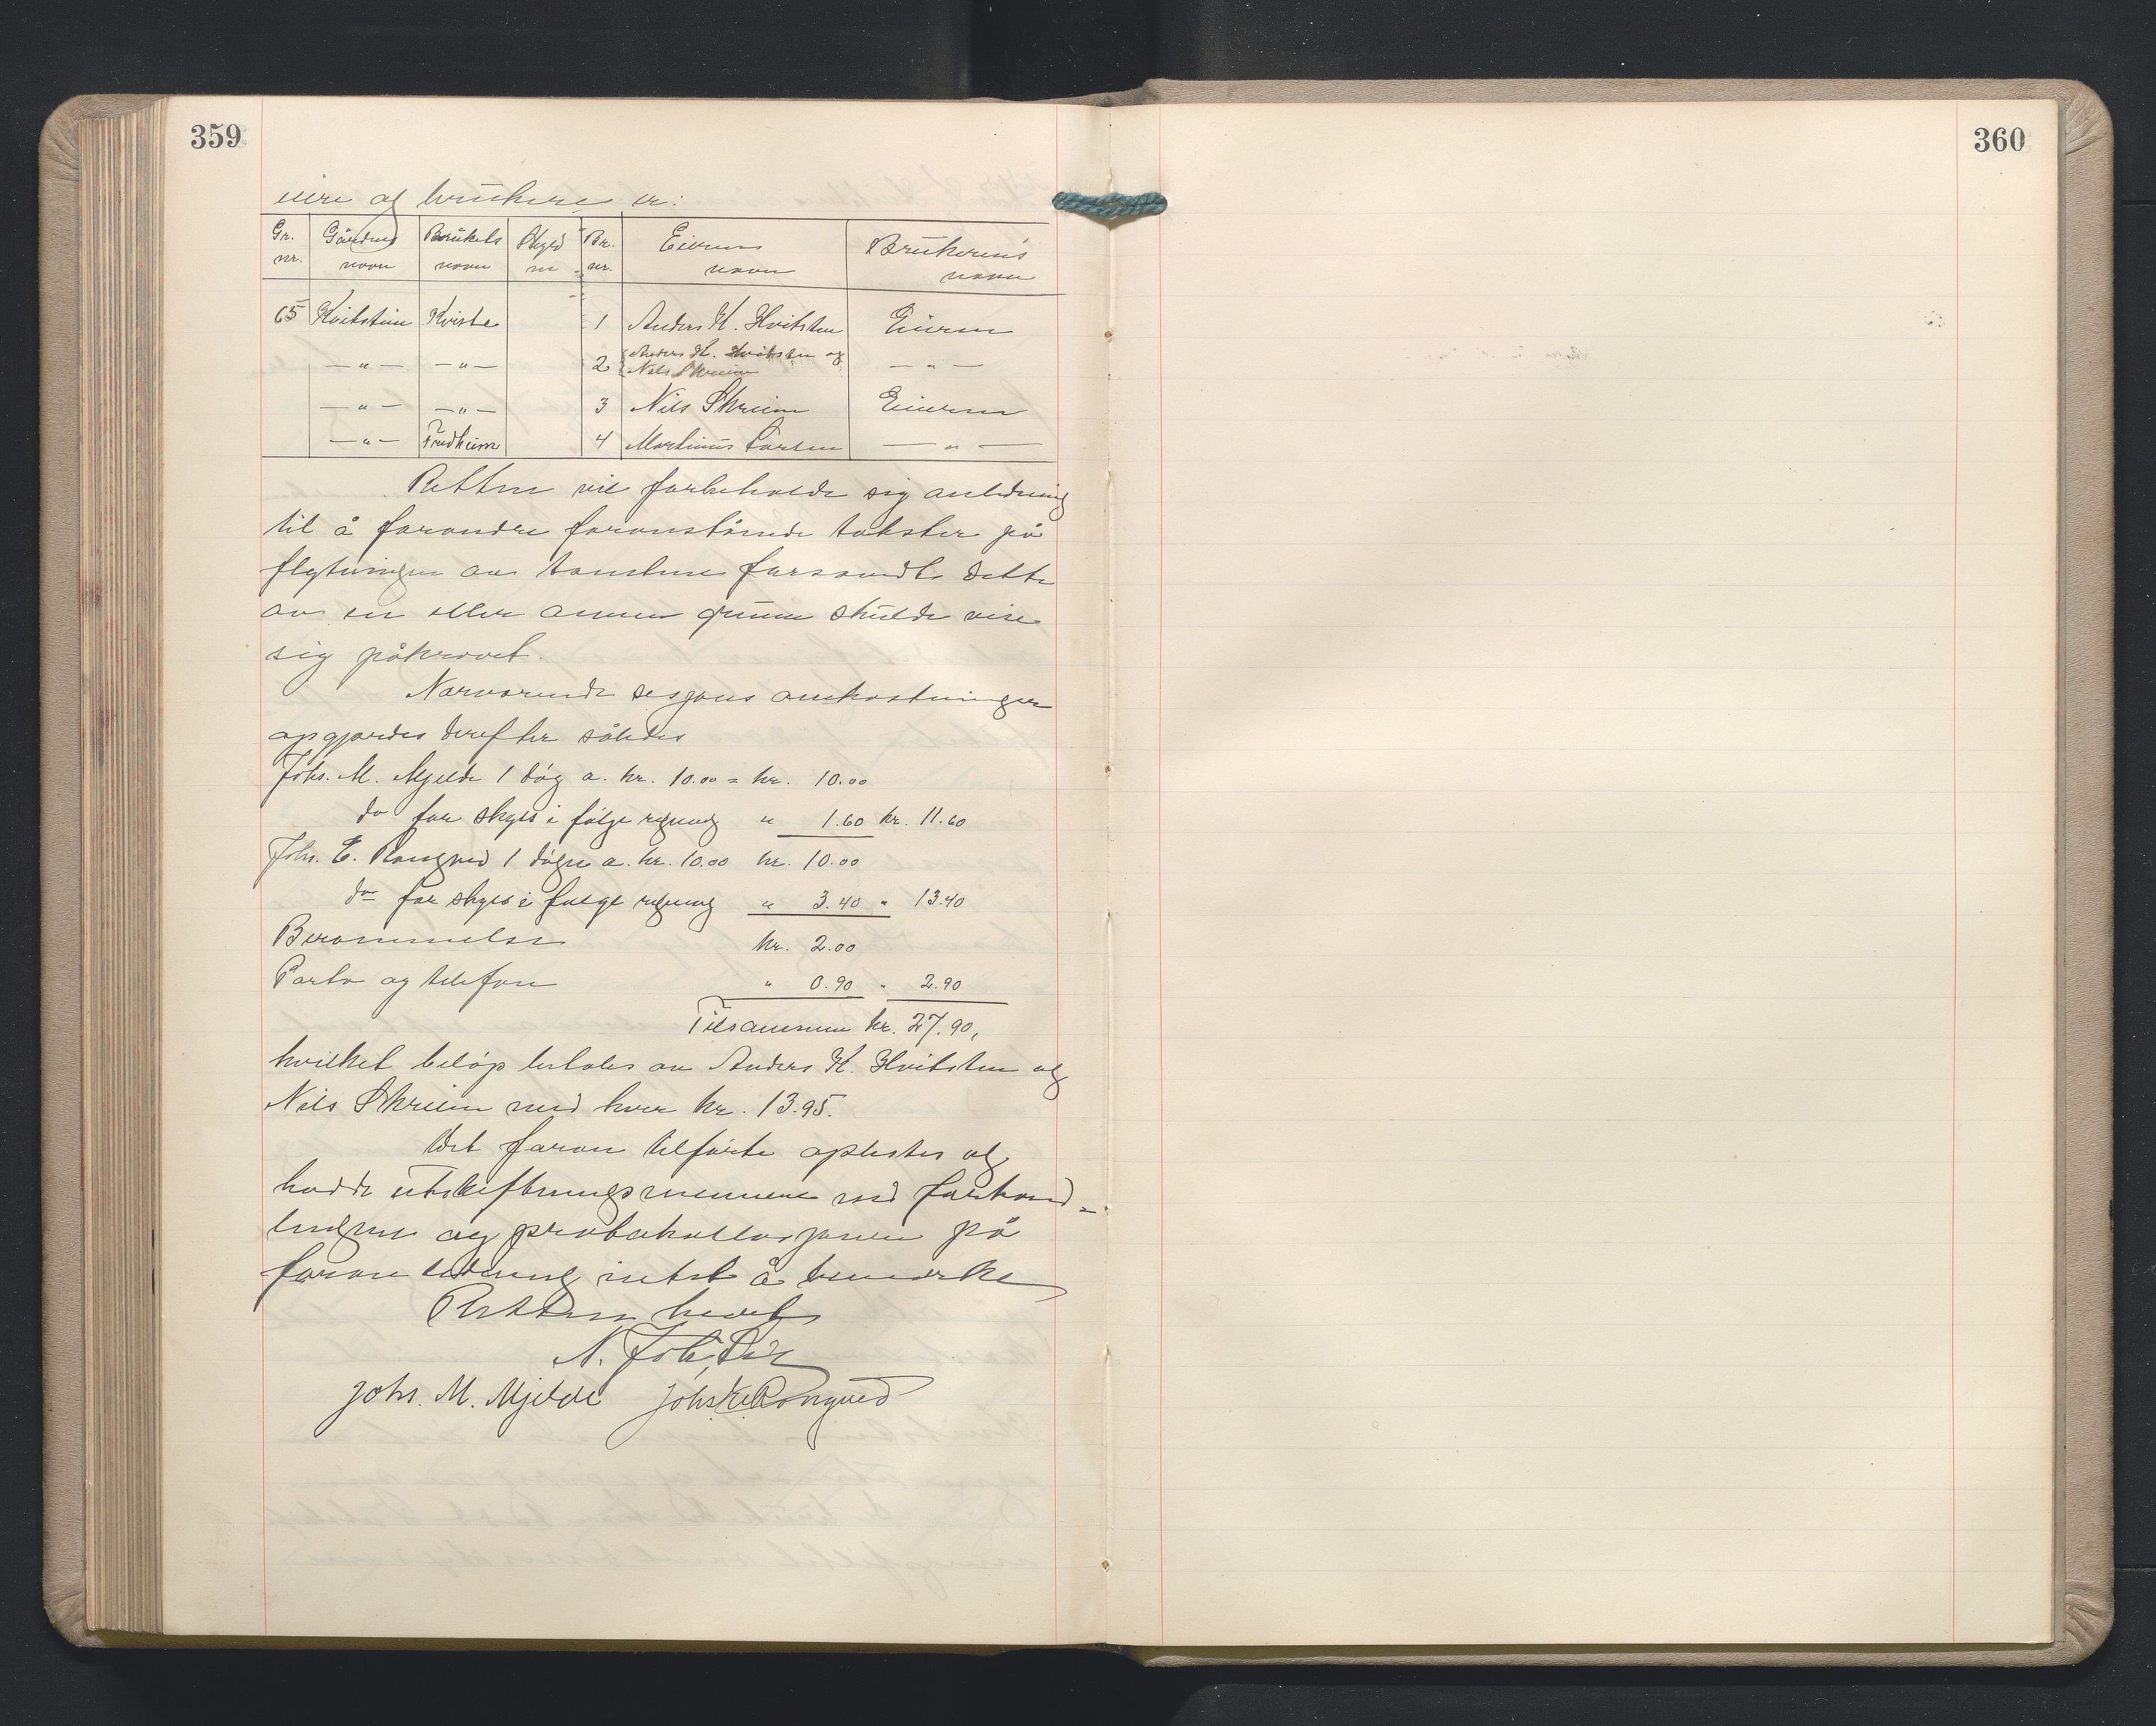 359
eiere og brukere er:
Gr. nr. Gårdens navn Brukets navn Skyld m Br. nr. Eierens navn Brukerens navn
65 Kvitstein Kviste 1 Anders K. Hvitsten Eieren
— " — — " — 2 Anders K. Hvitsten og Nils Skreien — " —
— " — — " — 3 Nils Skreien Eieren
— " — Fredheim 4 Martinus Larsen — " —
Retten vil forbeholde sig anledning
til å forandre foranstående takster på
flytningen av tomtene forsåvidt dette
av en eller annen grunn skulde vise
sig påkrevet.
Nærværende sesjons omkostninger
opgjordes derefter således
Johs. M. Mjelde 1 døg a. kr. 10.00 = kr. 10.00
do for skyss i følge regning " 1.60 kr. 11.60
Johs. E. Rongved 1 døgn a. kr. 10.00 kr. 10.00
do for skyss i følge regning " 3.40 " 13.40
Berammelse kr. 2.00
Porto og telefon " 0.90 " 2.90
Tilsammen kr. 27.90,
hvilket beløp betales av Anders K. Hvitsten og
Nils Skreien med hver kr. 13.95.
Det foran tilførte oplestes og
hadde utskiftningsmennene ved forhand-
lingene og protokollasjonen på
foranledning intet å bemerke
Retten hevet
N. Joh.
Johs. M. Mjelde Johs E Rongved
360